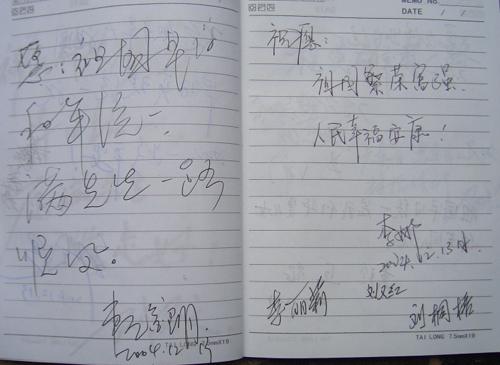 愿：祖国早日
和平统一.
满先生一路
顺风。
2004.12.13
TAI LONG 7.5mmX19
MEMO No.
DATE / /
祝愿：
祖国繁荣富强.
人民幸福安康！
2004.12.13日
李丽莉
TAI LONG 7.5mmX19